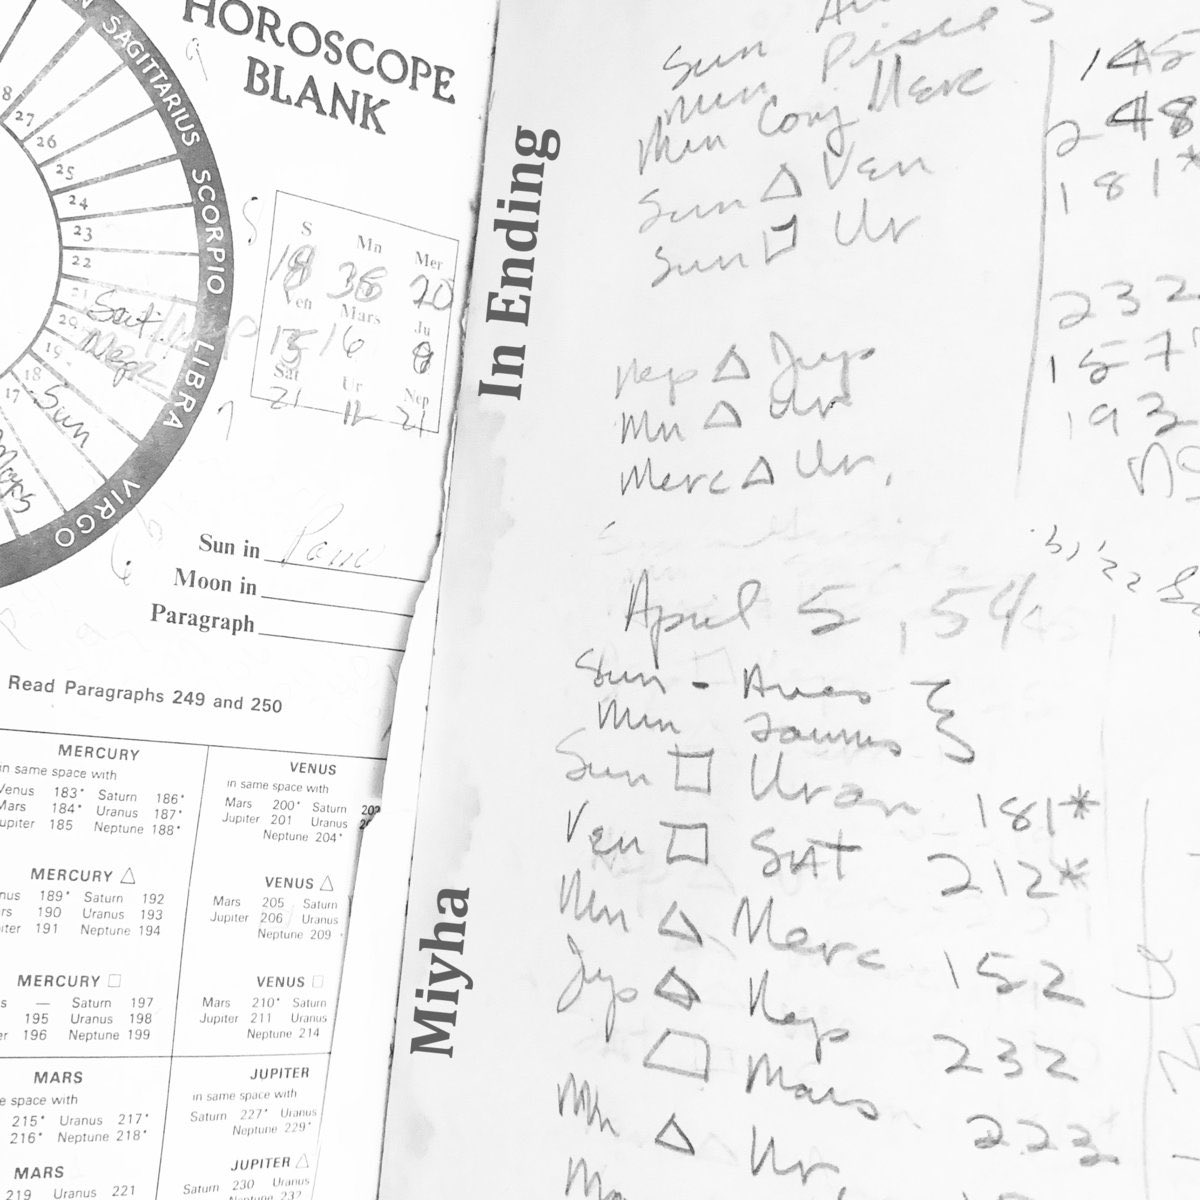 HOROSCOPE
BLANK
SAGITTARIUS
SCORPIO
LIBRA
VIRGO
8
27
26
25
24
23
22
21
20
19
18
17
Sat.
Nep
Sun
Mars
S Mn Mer
18 38 70
Ven Mars Ju
15 16 8
Sat Ur Nep
21 12 21
Sun in
Moon in
Paragraph
Read Paragraphs 249 and 250
MERCURY
in same space with
Venus 183* Saturn 186*
Mars 184* Uranus 187*
Jupiter 185 Neptune 188*
MERCURY △
nus 189* Saturn 192
rs 190 Uranus 193
iter 191 Neptune 194
MERCURY □
s — Saturn 197
195 Uranus 198
er 196 Neptune 199
MARS
e space with
215* Uranus 217*
216* Neptune 218*
MARS
219 Uranus 221
VENUS
in same space with
Mars 200* Saturn 202
Jupiter 201 Uranus
Neptune 204*
VENUS △
Mars 205 Saturn
Jupiter 206 Uranus
Neptune 209
VENUS □
Mars 210* Saturn
Jupiter 211 Uranus
Neptune 214
JUPITER
in same space with
Saturn 227* Uranus
Neptune 229*
JUPITER △
Saturn 230 Uranus
Neptune 232
In Ending
Miyha
Sun
Mun Pisces 145
Mun Conj Merc 248
Sun △ Ven 181*
Sun □ Ur
232
Nep △ Jup 157
Mn △ Ur 193
Merc △ Ur.
April 5, 54
Sun - Aries
Mun Taurus
Sun □ Uran 181*
Ven □ SAT 212*
Mn △ Merc 152
Jup △ Nep 232
□ Mars 223
Mn △ Ur